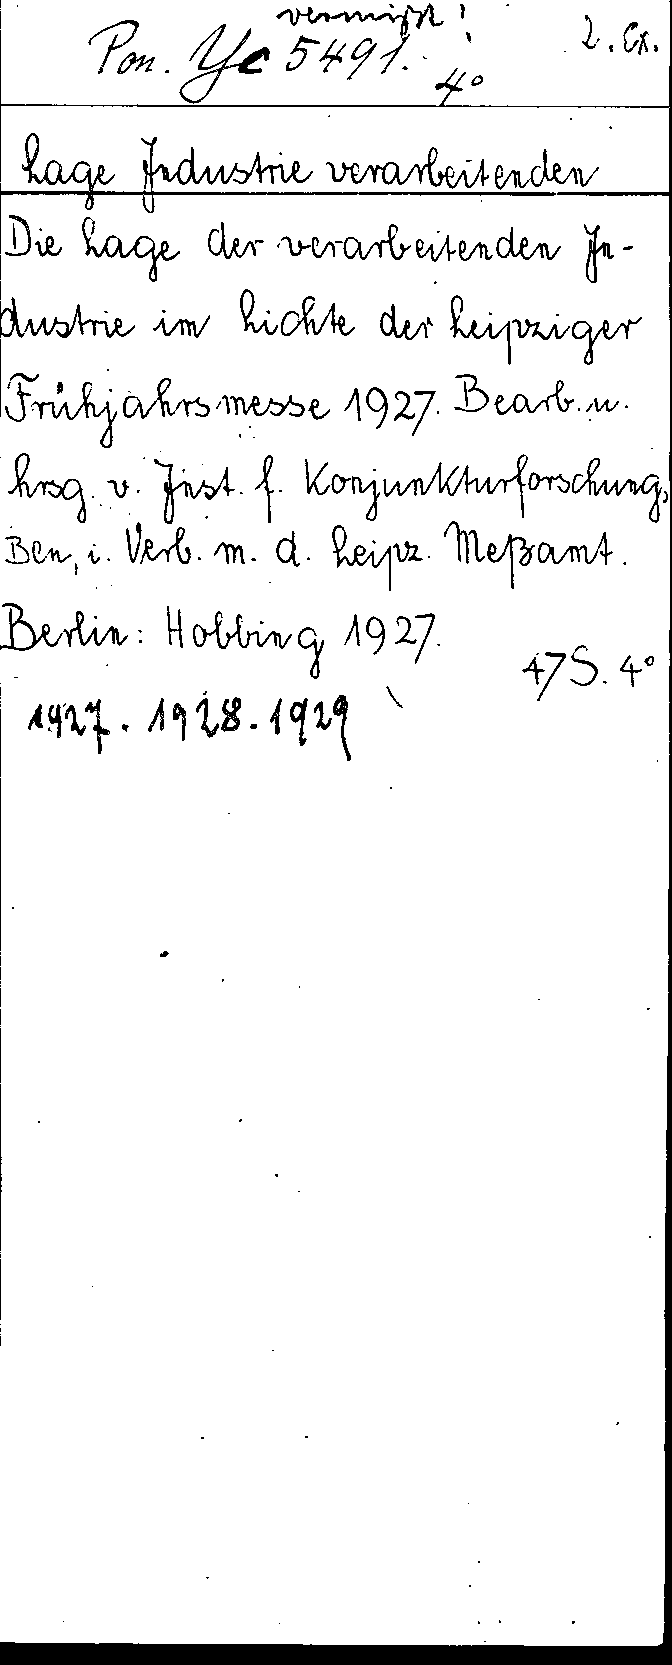 vermißt!
Pon. Yc 5491. 4°
2. Ex.
Lage Industrie verarbeitenden
Die Lage der verarbeitenden In-
dustrie im Lichte der Leipziger
Frühjahrsmesse 1927. Bearb. u.
hrsg. v. Inst. f. Konjunkturforschung,
Bln, i. Verb. m. d. Leipz. Meßamt.
Berlin: Hobbing 1927.
47 S. 4°
1927. 1928. 1929